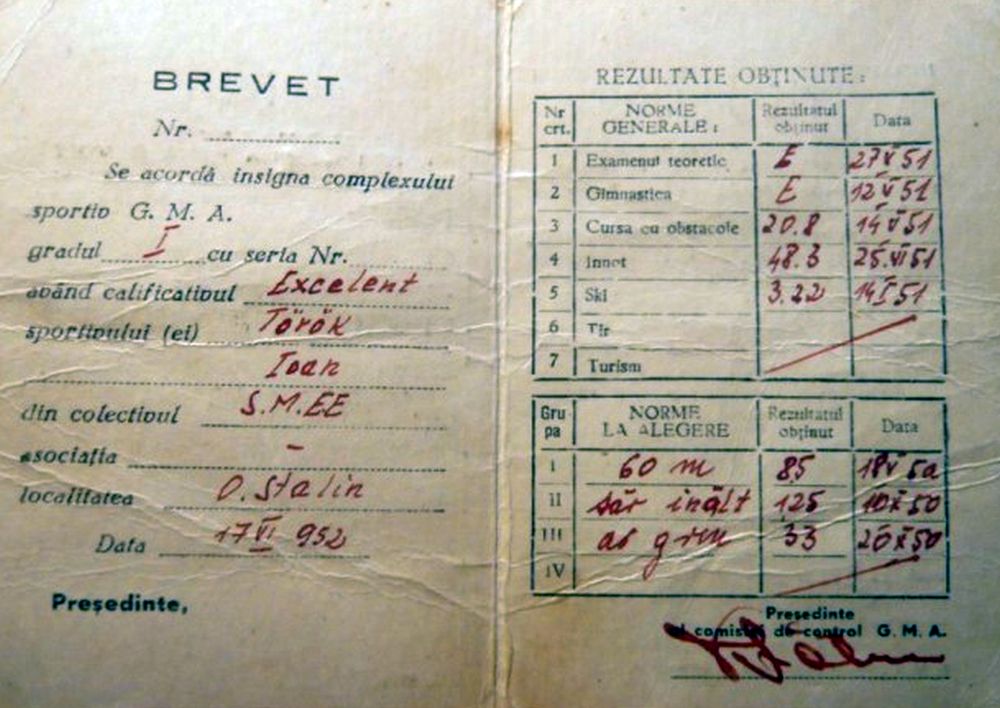 BREVET
Nr.
Se acordă insigna complexului
sportiv G. M. A.
gradul I cu seria Nr.
având calificativul Excelent
sportivului (ei) Török
Ioan
din colectivul S.M.EE
asociația -
localitatea O. Stalin
Data 17 VI 952
Președinte,
REZULTATE OBȚINUTE:
Nr crt. NORME GENERALE: Rezultatul obținut Data
1 Examenul teoretic E 27 V 51
2 Gimnastica E 12 V 51
3 Cursa cu obstacole 20.8 14 V 51
4 Innot 48.3 25.VI 51
5 Ski 3.22 14 I 51
6 Tir
7 Turism
Gru pa NORME LA ALEGERE Rezultatul obținut Data
I 60 m 85 18 V
II săr inălt 125 10 X 50
III ar gren 33 20 X 50
IV
Președinte
al comisiei de control G. M. A.